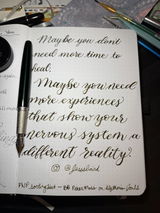 Maybe you don't
need more time to
heal.
Maybe you need
more experiences
that show your
nervous system a
different reality?